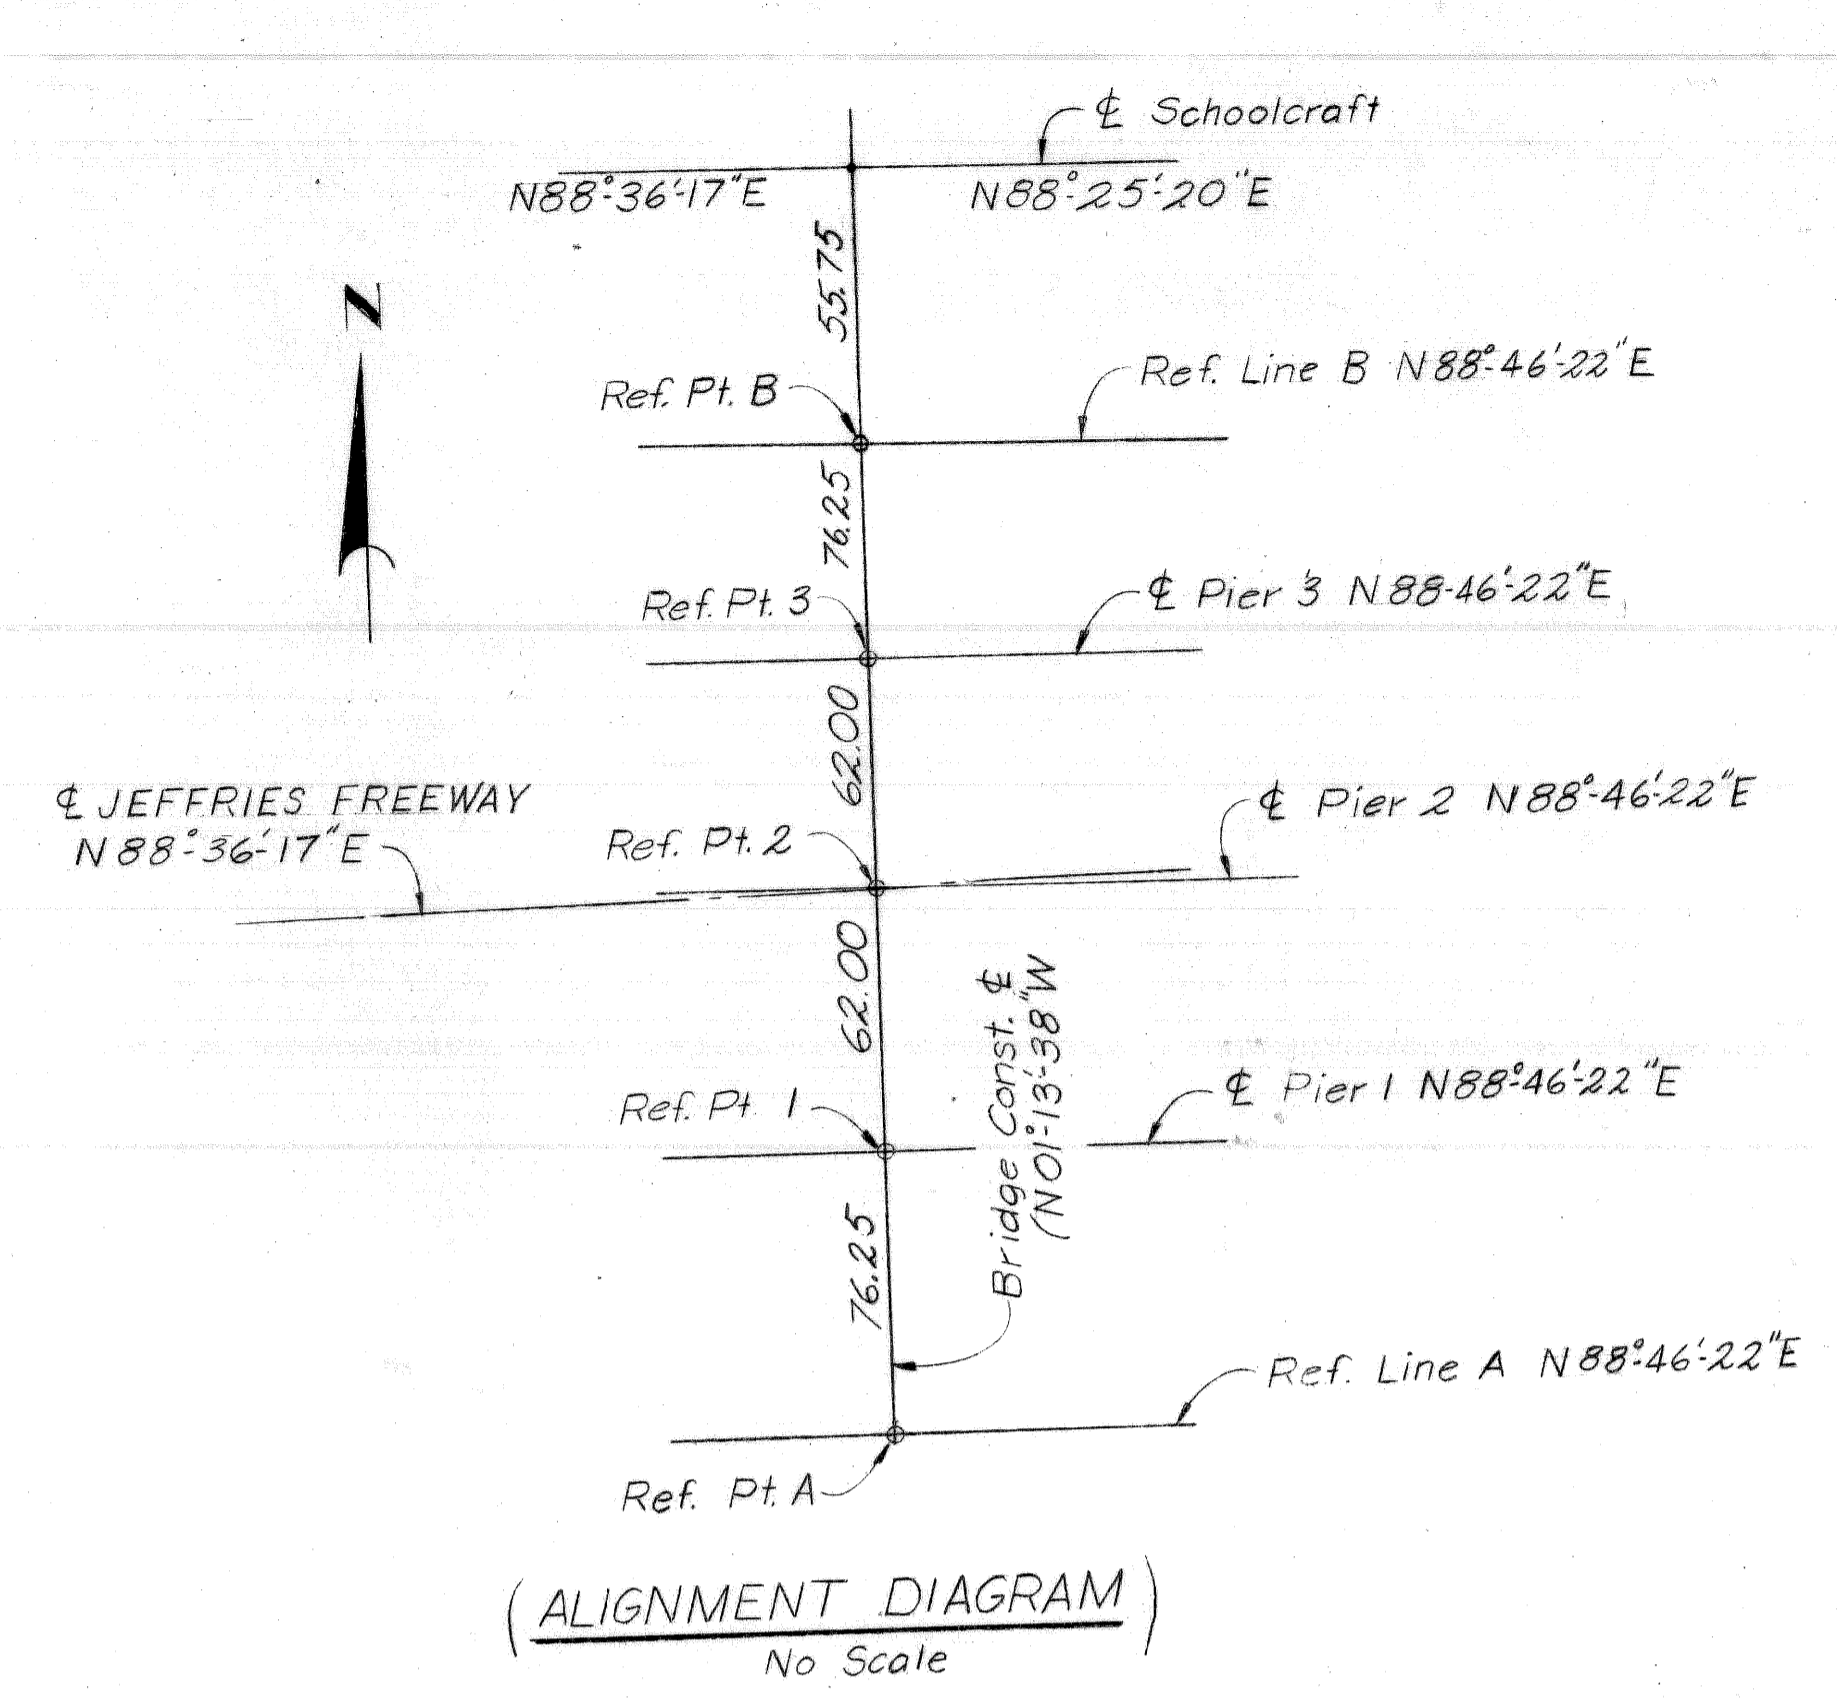 ℄ Schoolcraft
N88°-36'-17"E
N88°-25'-20"E
55.75
N
Ref. Pt. B
Ref. Line B N88°-46'-22"E
76.25
Ref. Pt. 3
℄ Pier 3 N88-46'-22"E
62.00
℄ JEFFRIES FREEWAY
N88°-36'-17"E
Ref. Pt. 2
℄ Pier 2 N88°-46'-22"E
62.00
Bridge Const. ℄
(N01°-13'-38"W
Ref. Pt. 1
℄ Pier 1 N88°-46'-22"E
76.25
Ref. Line A N88°-46'-22"E
Ref. Pt. A
(ALIGNMENT DIAGRAM)
No Scale